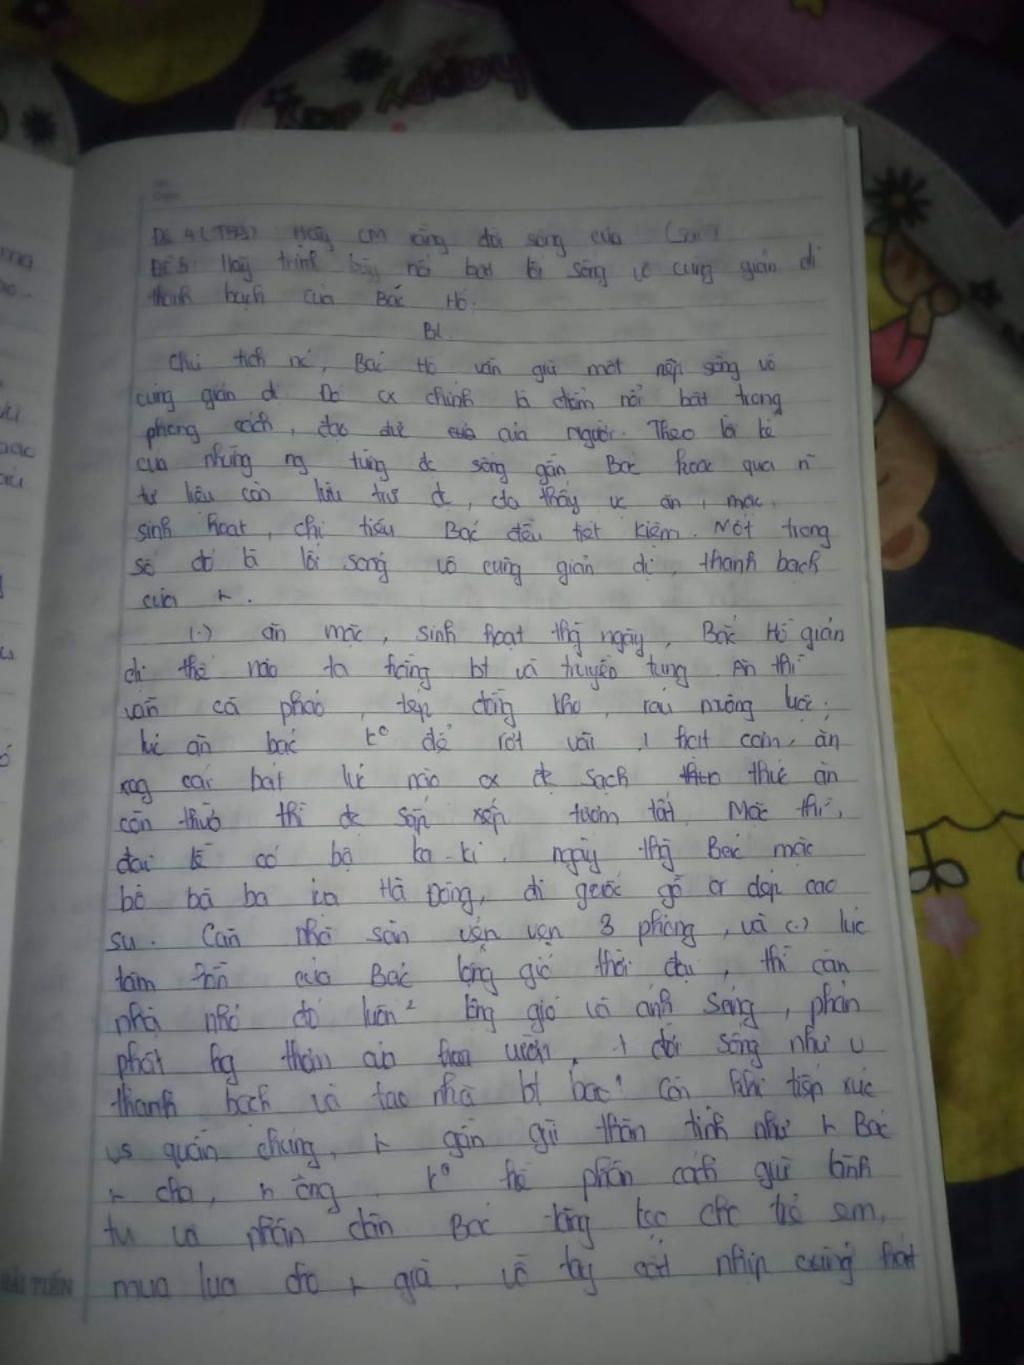 Đề 4 (T59) Hãy CM rằng đời sống của
Đề 5: Hãy trình bày nổi bật lối sống vô cùng giản dị
thanh bạch của Bác Hồ.
BL
Chủ tịch nc, Bác Hồ vẫn giữ một nếp sống vô
cùng giản dị Đó cx chính là điểm nổi bật trong
phong cách, đạo đức của người. Theo lời kể
của những ng từng đc sống gần Bác hoặc qua n~
tư liệu còn lưu trữ đc, ta thấy vc ăn, mặc,
sinh hoạt, chi tiêu Bác đều tiết kiệm. Một trong
số đó là lối sống vô cùng giản dị, thanh bạch
của
(.) ăn mặc, sinh hoạt thg ngày, Bác Hồ giản
dị thế nào ta bt và truyền tụng. Ăn thì
vẫn cá pháo, tép đồng kho, rau muống luộc,
lúc ăn bác ko để rớt vãi 1 hạt cơm, ăn
xog cái bát lúc nào cx đc sạch thức ăn
còn thừa thì đc sắp xếp tươm tất. Mặc thì,
đại lễ có bộ ka-ki, ngày thg Bác mặc
bộ bà ba lụa Hà Đông, đi guốc gỗ or dép cao
su. Căn nhà sàn vẻn vẹn 3 phòng, và (.) lúc
tâm hồn của Bác lộng gió thời đại, thì căn
nhà nhỏ đó luôn² lộng gió và ánh sáng, phản
phất hg thơm của hoa vườn, 1 đời sống như v
thanh bạch và tao nhã bt bao! Còn khi tiếp xúc
vs quần chúng, gần gũi thân tình như Bác
cha, ông. ko hề phân cách giữ lãnh
tụ và nhân dân Bác tặng kẹo cho trẻ em,
mua lụa cho già, vỗ tay cất nhịp cùng hát